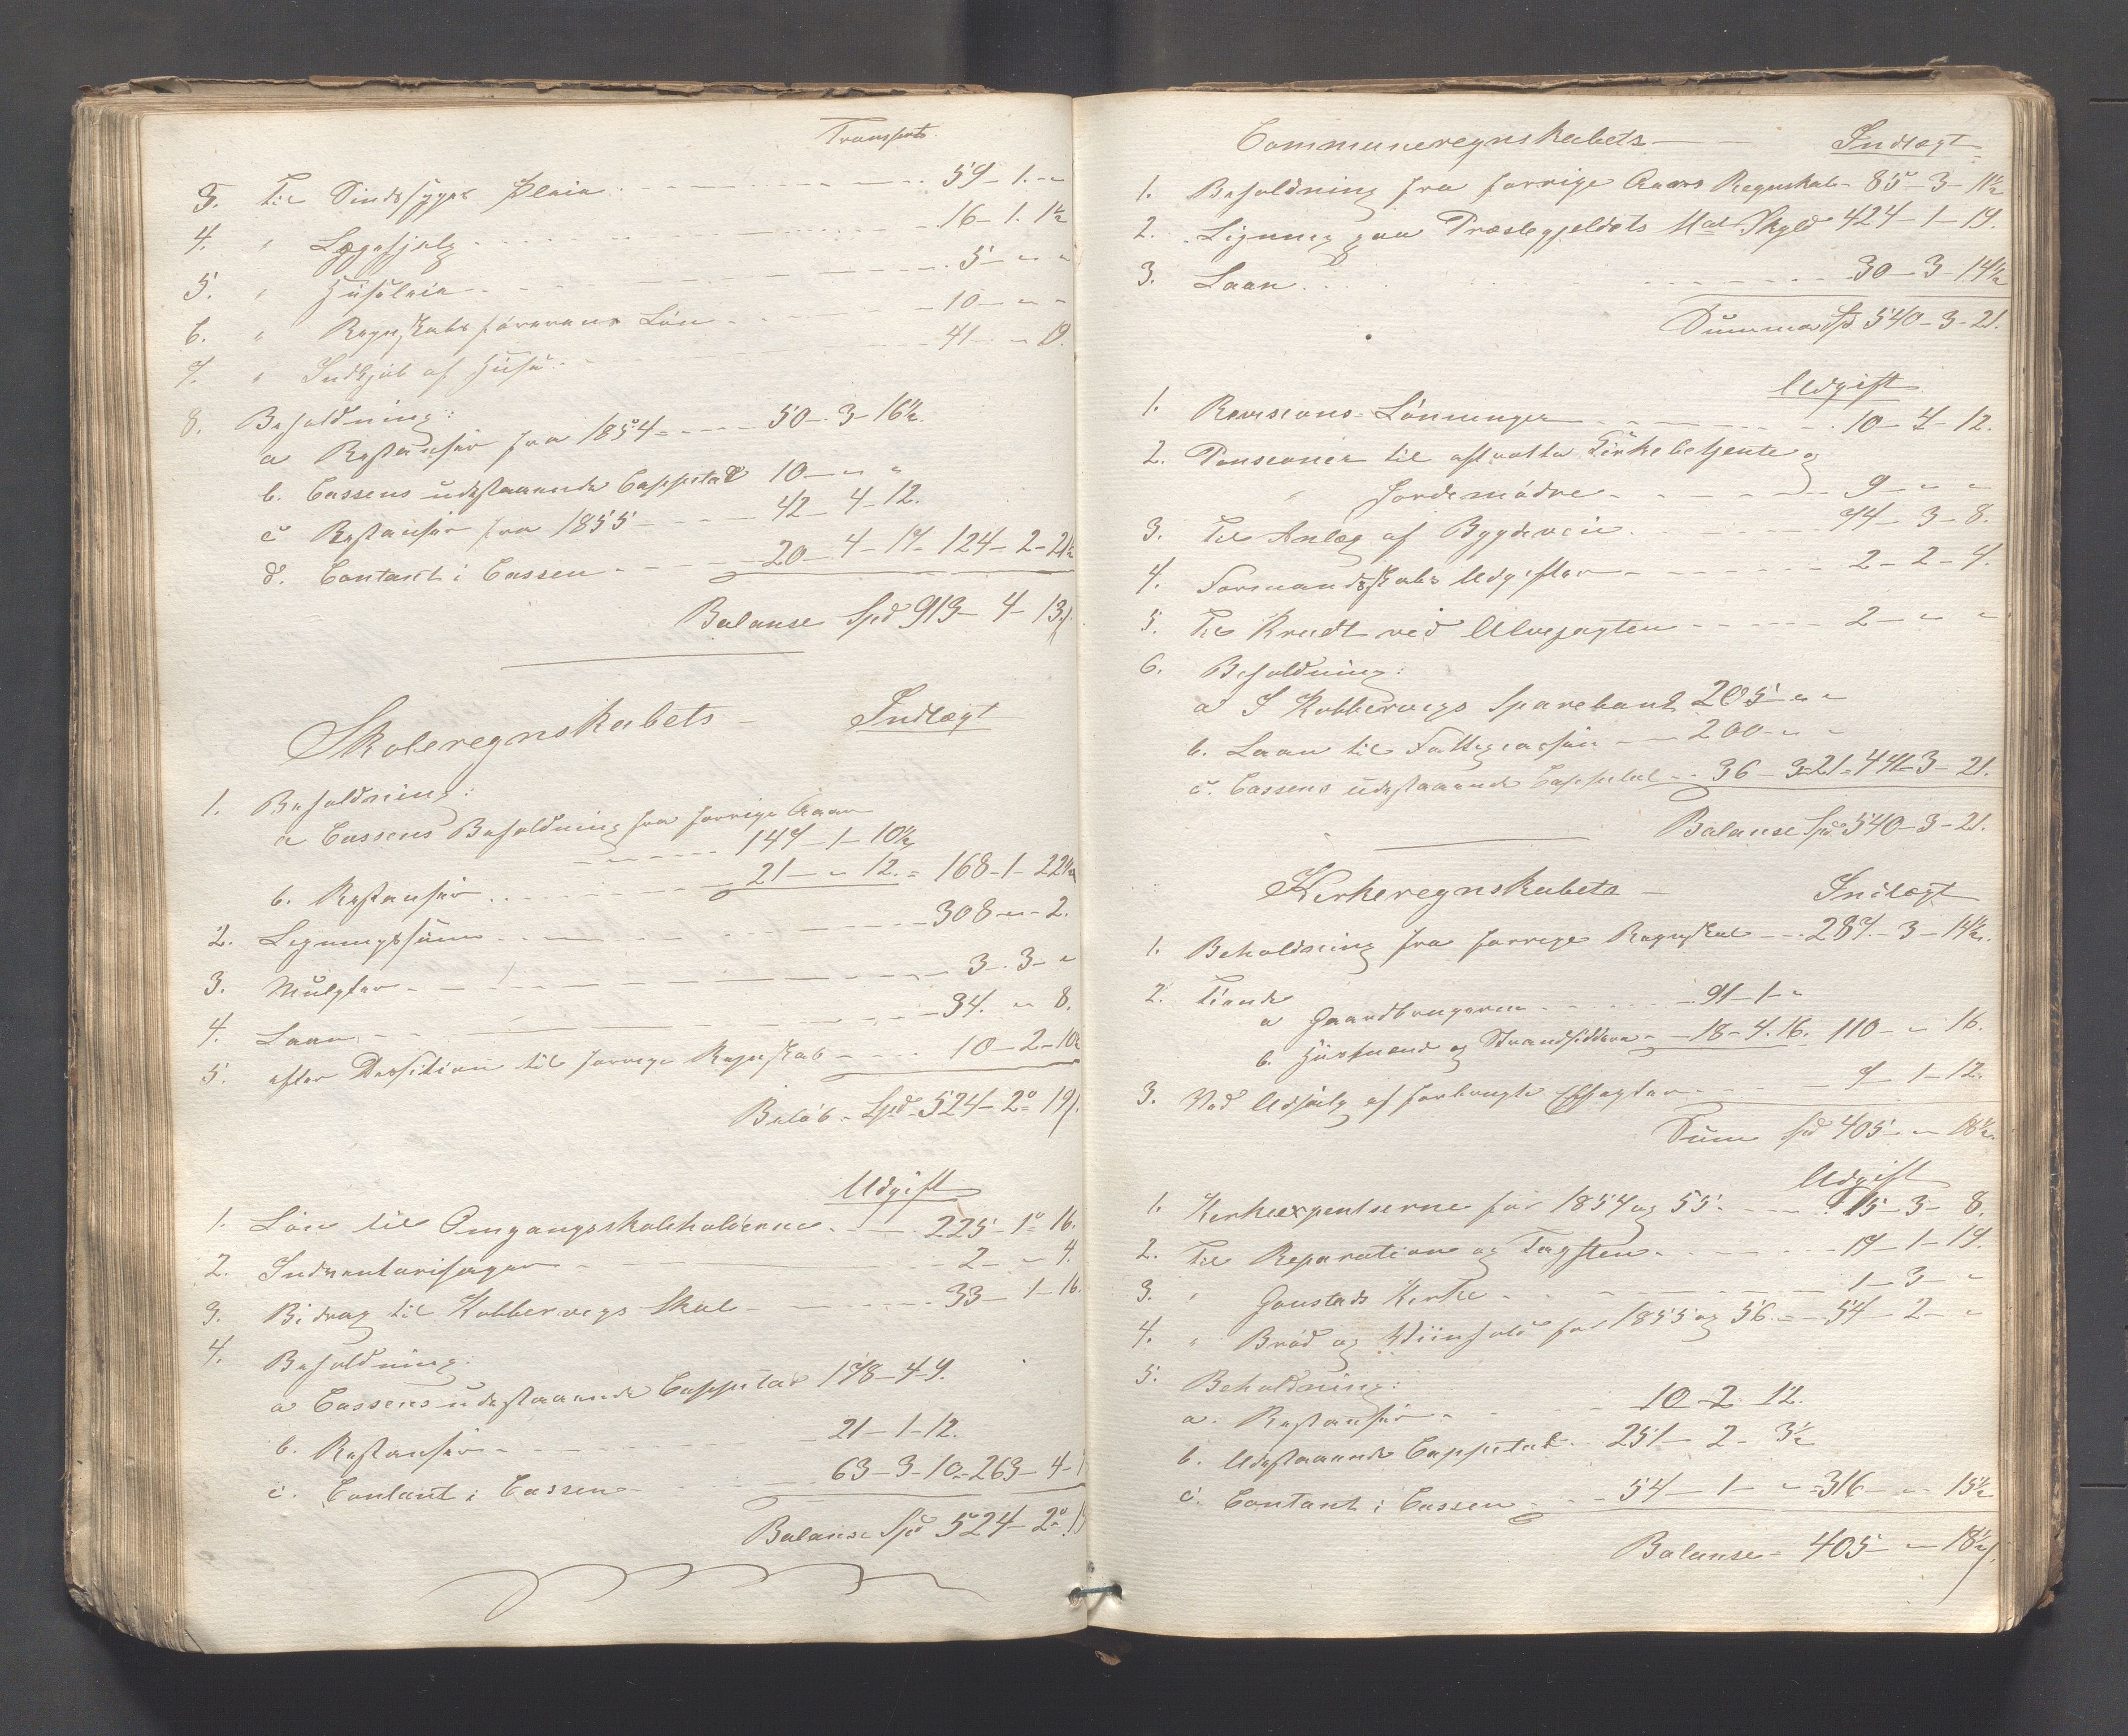 Transport
3. Til Sindssyges Pleie 59 - 1 - "
4. " Lægehjelp 16 - 1 - 1½
5. " Huusleie 5 - " - "
6. " Regnskabsførerens Løn 10 - " - "
7. " Indkjøb af Huse 41 - " - 19.
8. Beholdning:
a Restanser fra 1854 50 - 3 - 16½
b. Cassens udestaaende Cappital 10 - " - "
c Restanser fra 1855 42 - 4 - 12.
d. Contant i Cassen 20 - 4 - 17 = 124 - 2 - 21½
Balanse Spd 913 - 4 - 13
Skoleregnskabets - Indtægt
1. Beholdning:
a Cassens Beholdning fra forrige Aar
147 - 1 - 10½
b. Restanser 21 - " - 12. = 168 - 1 - 22½
2. Ligningssum 308 - " - 2.
3. Mulgter 3 - 3 - "
4. Laan 34 - " - 8.
5. efter Desition til forrige Regnskab 10 - 2 - 10½
Beløb - Spd. 524 - 2 - 19
Udgift
1. Løn til Omgangsskoleholderne 225 - 1 - 16.
2. Indventarisager 2 - " - 4.
3. Bidrag til Kobbervigs Skole 33 - 1 - 16.
4. Beholdning:
a Cassens udestaaende Cappital 178 - 4 - 9.
b. Restanser 21 - 1 - 12.
c. Contant i Cassen 63 - 3 - 10 = 263 - 4 -
Balanse Spd 524 - 2
Communeregnskabets - Indtægt
1. Beholdning fra forrige Aars Regnskab 85 - 3 - 11½
2. Ligning paa Præstegjeldets Mat Skyld 424 - 1 - 19.
3. Laan 30 - 3 - 14½
Summa Spd 540 - 3 - 21.
Udgift
1. Revisions-Lønninger 10 - 4 - 12.
2. Pensioner til aftratte Kirkebetjente og
" Jordemødre 9 - " - "
3. Til Anlæg af Bygdevei 74 - 3 - 8.
4. Formandskabs Udgifter 2 - 2 - 4.
5. Til Krudt ved Ulvejagten 2 - " - "
6. Beholdning:
a I Kobbervigs Sparebank 205 - " - "
b. Laan til Fattigcassen 200 - " - "
c. Cassens udestaaende Cappital 36 - 3 - 21 = 441 - 3 - 21.
Balanse Spd. 540 - 3 - 21.
Kirkeregnskabets - Indtægt
1. Beholdning fra forrige Regnskab 287 - 3 - 14½.
2. Tiende
a Gaardbrugeren 91 - 1 - "
b. Huusmænd og Strandsiddere 18 - 4 - 16. 110 - " - 16.
3. Ved Udsalg af forbrugte Effegter 7 - 1 - 12.
Sum Spd 405 - " - 18½.
Udgift
1. Kirkeexpentserne for 1854 og 55 15 - 3 - 8.
2. Til Reparation og Tagsten 17 - 1 - 19.
3. " Gonstads Kirke 1 - 3 - "
4. " Brød og Viinhold for 1855 og 56 54 - 2 - "
5. Beholdning:
a. Restanser 10 - 2 - 12.
b. Udestaaende Cappital 251 - 2 - 3½
c. Contant i Cassen 54 - 1 - " = 316 - " - 15½
Balanse - 405 - " - 18½